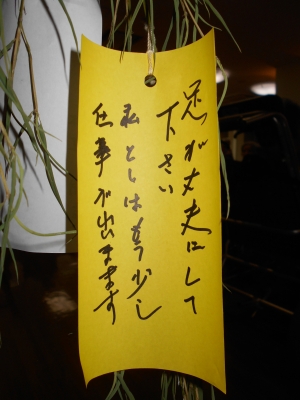 足が丈夫にして
下さい
私としはもう少し
仕事が出まます